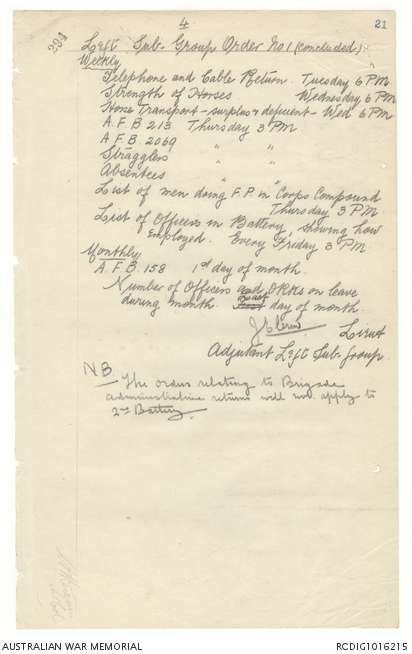 4
21
294
Left Sub. Group Order No 1 (concluded)
Weekly
Telephone and Cable Return. Tuesday 6 PM
Strength of Horses Wednesday 6 PM
Horse Transport - surplus & deficient - Wed 6 PM
A.F.B 213 Thursday 3 PM
A.F.B. 2069
Stragglers " "
Absentees "
List of men doing F.P in Corps Compound
Thursday 3 PM
List of Officers in Battery, showing how
Employed. Every Friday 3 PM
Monthly
A.F.B. 158 1st day of month.
Number of Officers and ORks on leave
during month. day of month
Lieut
Adjutant Left Sub. group
NB
The orders relating to Brigade
administrative returns will not apply to
2nd Battery.
AUSTRALIAN WAR MEMORIAL
RCDIG1016215